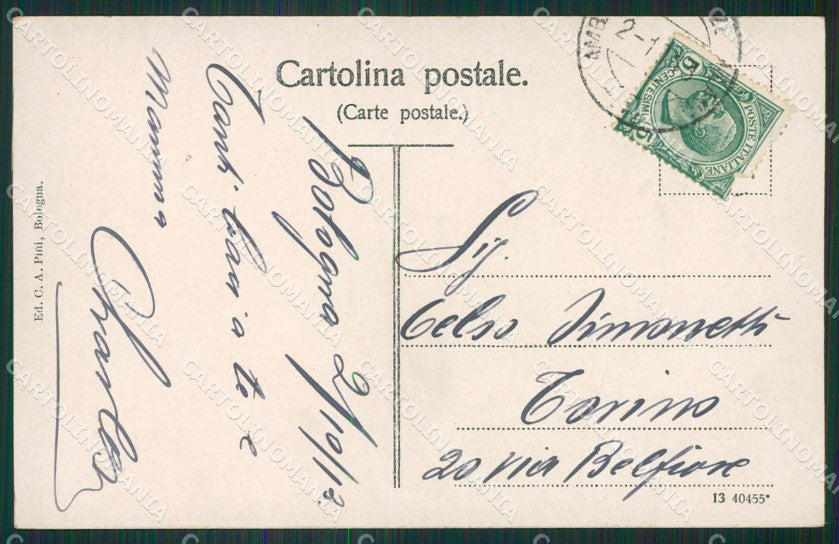 Cartolina postale.
(Carte postale.)
Bologna 2/10/13
Tanti baci a te e
Mamma
Charles
Ed. C. A. Pini, Bologna.
AMB
2-1
POSTE ITALIANE
CENTESIMI
5
Sig.
Celso Simonetti
Torino
20 via Belfiore
13 40455*
CARTOLINOMANIA